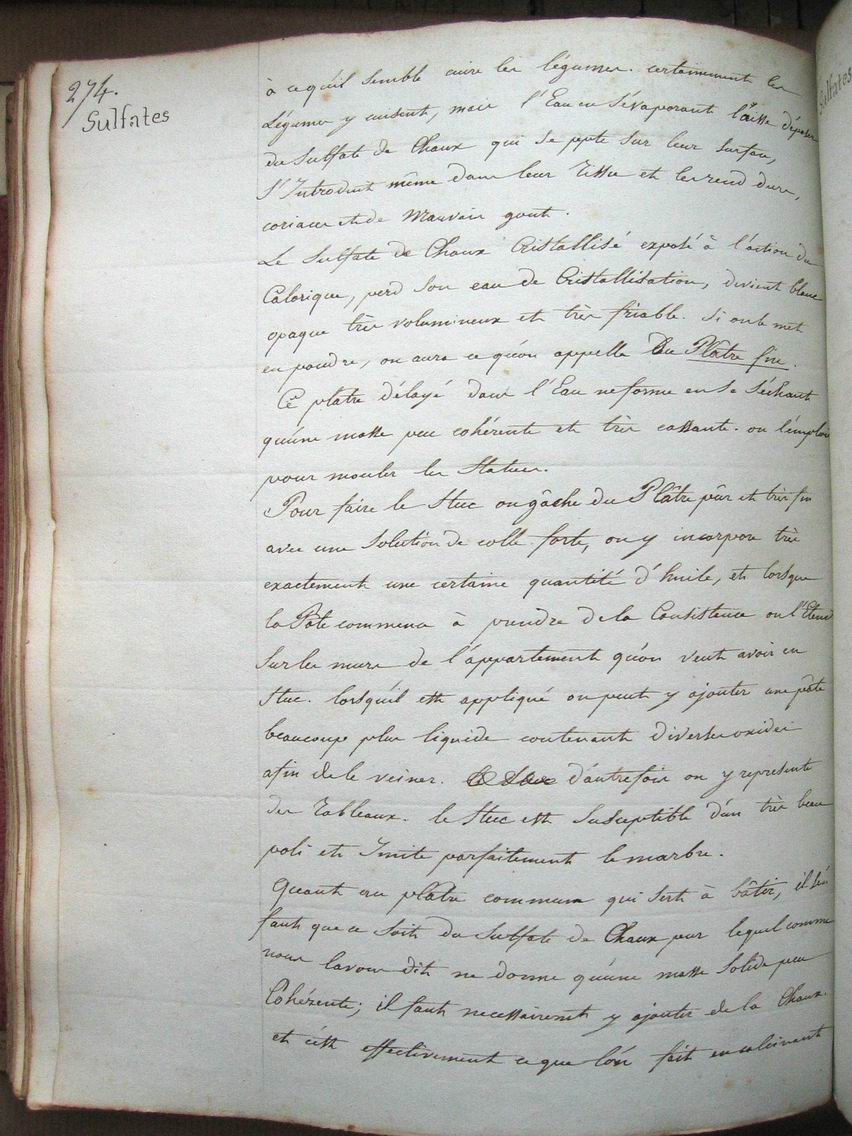 274.
Sulfates
à ce qu'il semble cuire les légumes. certainement les
Légumes y cuisent, mais l'Eau en s'évaporant laisse déposer
du Sulfate de Chaux qui se porte sur leur surface,
S'Introduit même dans leur Tissu et les rend durs,
coriaces et de Mauvais gout.
Le Sulfate de Chaux Cristallisé exposé à l'action du
Calorique, perd son eau de Cristallisation, devient blanc
opaque très volumineux et très friable. Si on le met
en poudre, on aura ce qu'on appelle Du Plâtre fin.
Ce platre délayé dans l'Eau ne forme en se Séchant
qu'une masse peu cohérente et très cassante. on l'emploie
pour mouler les Statues.
Pour faire le Stuc on gâche du Plâtre pûr et très fin
avec une Solution de colle forte, on y incorpore très
exactement une certaine quantité d'huile, et lorsque
la Pâte commence à prendre de la Consistence on l'Etend
sur les murs de l'appartement qu'on veut avoir en
Stuc. lorsqu'il est appliqué on peut y ajouter une pâte
beaucoup plus liquide contenant divers oxides
afin de le veiner. d'autrefois on y represente
des Tableaux. le Stuc est Susceptible d'un très beau
poli et Imite parfaitement le marbre.
Quant au platre commun qui sert à bâtir, il s'en
faut que ce soit du Sulfate de Chaux pur lequel comme
nous l'avons dit ne donne qu'une masse Solide peu
Cohérente; il faut necessairement y ajouter de la Chaux.
et c'est effectivement ce que l'on fait en calcinant